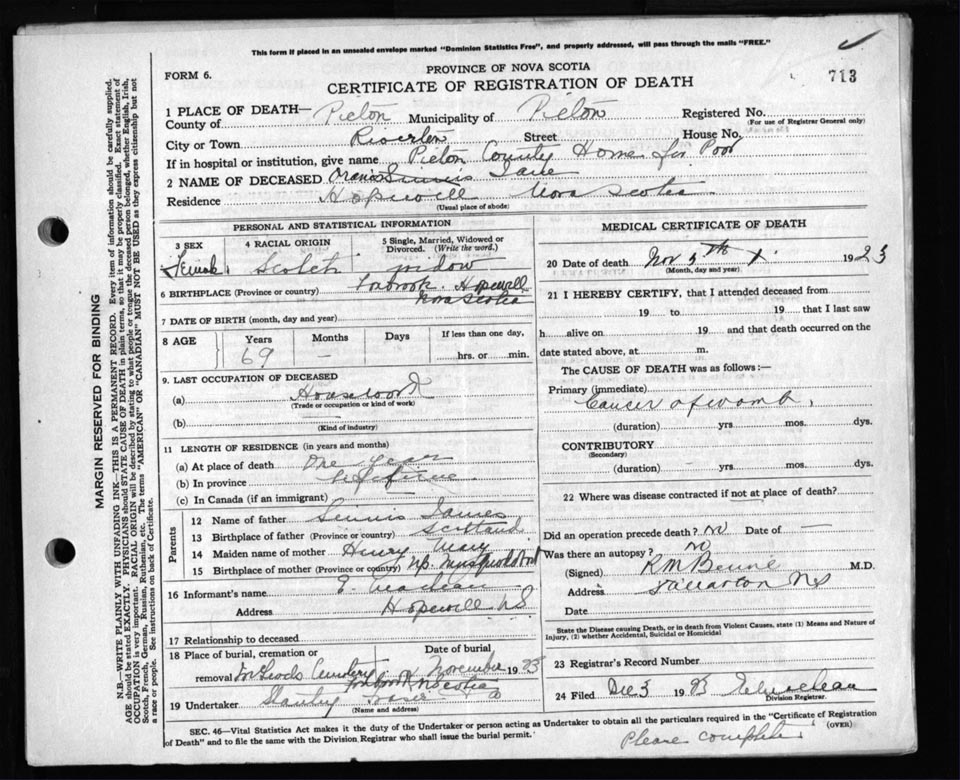 This form if placed in an unsealed envelope marked "Dominion Statistics Free", and properly addressed, will pass through the mails "FREE."
PROVINCE OF NOVA SCOTIA
FORM 6.
CERTIFICATE OF REGISTRATION OF DEATH
713
1 PLACE OF DEATH—
County of Pictou Municipality of Pictou Registered No.
(For use of Registrar General only)
City or Town Riverton Street House No.
If in hospital or institution, give name Pictou County Home for Poor
2 NAME OF DECEASED Jane
Residence Hopewell Nova Scotia
(Usual place of abode)
PERSONAL AND STATISTICAL INFORMATION
3 SEX 4 RACIAL ORIGIN 5 Single, Married, Widowed or Divorced. (Write the word.)
Female Scotch Widow
6 BIRTHPLACE (Province or country) Foxbrook Hopewell
Nova Scotia
7 DATE OF BIRTH (month, day and year)
8 AGE Years Months Days If less than one day,
69 — hrs. or min.
9. LAST OCCUPATION OF DECEASED
(a) Housework
(Trade or occupation or kind of work)
(b)
(Kind of industry)
11 LENGTH OF RESIDENCE (in years and months)
(a) At place of death One year
(b) In province Life time
(c) In Canada (if an immigrant)
Parents
12 Name of father James
13 Birthplace of father (Province or country) Scotland
14 Maiden name of mother Henry Mary
15 Birthplace of mother (Province or country) N.S.
16 Informant's name E.
Address Hopewell N S
17 Relationship to deceased
18 Place of burial, cremation or removal Cemetery Foxbrook N Scotia
Date of burial November 1923
19 Undertaker Stanley
(Name and address)
MEDICAL CERTIFICATE OF DEATH
20 Date of death Nov 5th 1923
(Month, day and year)
21 I HEREBY CERTIFY, that I attended deceased from
19 to 19 that I last saw
h alive on 19 and that death occurred on the
date stated above, at m.
The CAUSE OF DEATH was as follows:—
Primary (immediate)
Cancer of womb.
(duration) yrs mos. dys.
CONTRIBUTORY
(Secondary)
(duration) yrs. mos. dys.
22 Where was disease contracted if not at place of death?
Did an operation precede death? no Date of —
Was there an autopsy? no
(Signed) M.D.
Address N S
Date
State the Disease causing Death, or in death from Violent Causes, state (1) Means and Nature of
Injury, (2) whether Accidental, Suicidal or Homicidal
23 Registrar's Record Number
24 Filed Dec 3 1923
Division Registrar.
(OVER)
SEC. 46—Vital Statistics Act makes it the duty of the Undertaker or person acting as Undertaker to obtain all the particulars required in the "Certificate of Registration
of Death" and to file the same with the Division Registrar who shall issue the burial permit.
Please complete
MARGIN RESERVED FOR BINDING
N.B.—WRITE PLAINLY WITH UNFADING INK—THIS IS A PERMANENT RECORD. Every item of information should be carefully supplied.
AGE should be stated EXACTLY. PHYSICIANS should STATE CAUSE OF DEATH in plain terms, so that it may be properly classified. Exact statement of
OCCUPATION is very important. RACIAL ORIGIN will be described by stating to what people or tongue the deceased person belonged, whether English, Irish,
Scotch, French, German, Russian, Ruthenian, etc. The terms "AMERICAN" or "CANADIAN" MUST NOT BE USED as they express citizenship but not
a race or people. See instructions on back of Certificate.